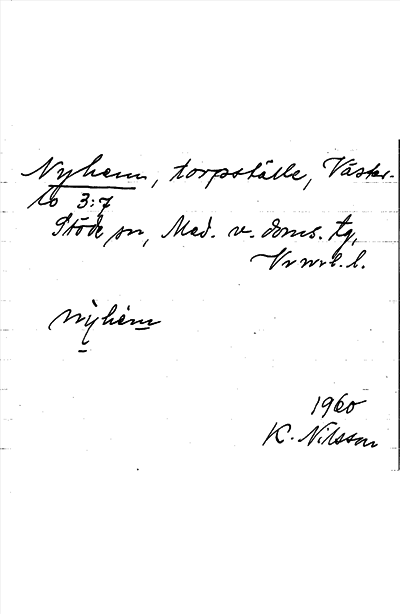 Nyhem, torpställe, Väster-
lo 3:7
Stöde sn, Med. v. doms. tg,
Vnrrl. l.
nỳhém
1960
K. Nilsson